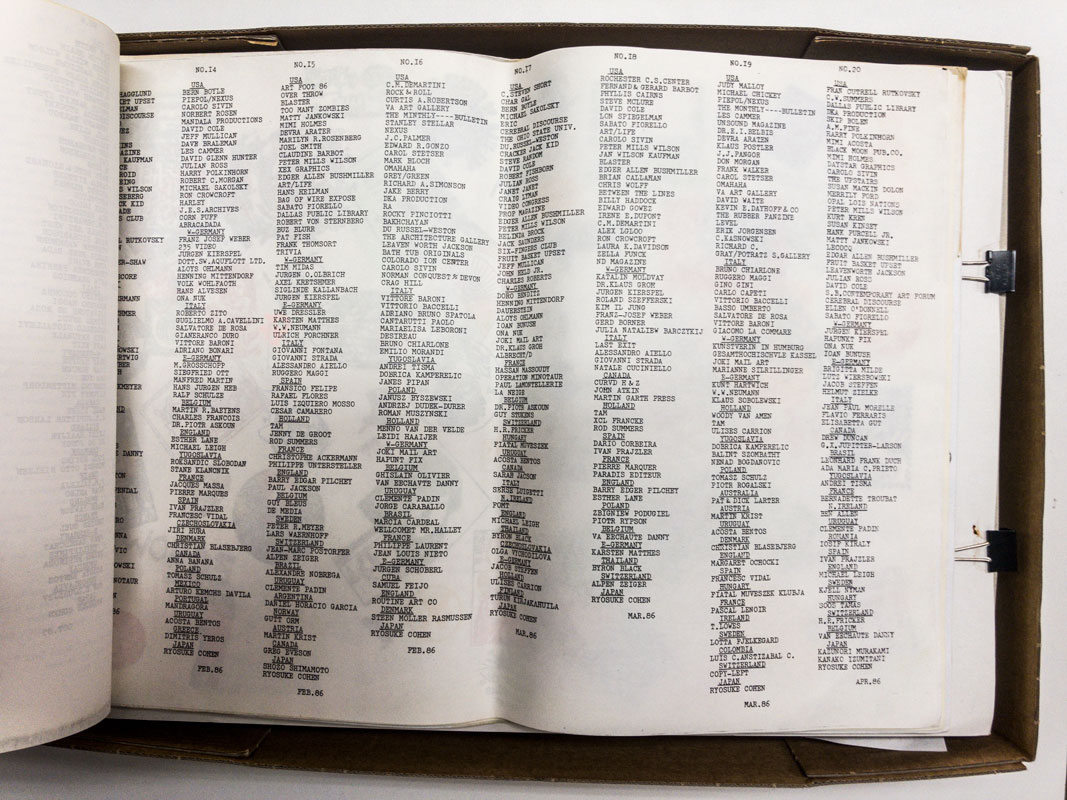 HAGGLUND
ET UPSET
ILMAN
DISCOURSE
KAUFMAN
S WILSON
K KID
S CLUB
L RUTKOVSKY
ER-SHAW
SCORE
ERMANN
OWSKI
RTWIG
KMEYER
S DANNY
PENDAL
NNA
VIC
NOTAUR
86
NO.I4
USA
BERN BOYLE
PIEPOL/NEXUS
CAROLO SIVIN
NORBERT ROSEN
MANDALA PRODUCTIONS
DAVID COLE
JEFF MULLICAN
DAVE BRALEMAN
LES CAMMER
DAVID GLENN HUNTER
JULIAN ROSS
HARRY POLKINHORN
ROBERT C.MORGAN
MICHAEL SAKOLSKY
RON CROWCROFT
HARLEY
J.E.S.ARCHIVES
CORN PUFF
ABRACADADA
W-GERMANY
FRANZ JOSEF WEBER
235 VIDEO
JURGEN KIERSPEL
DOTT.SW.AQUFLOTT LTD.
ALOYS OHLMANN
HENNING MITTENDORF
VOLK WOHLFAOTH
HANS ALVESEN
ONA NUK
ITALY
ROBERTO ZITO
GUGLIELMO A.CAVELLINI
SALVATORE DE ROSA
GIANFRANCO DURO
VITTORE BARONI
ADRIANO BONARI
E-GERMANY
M.GROSSCHOPF
SIEGFRIED OTT
MANFRED MARTIN
HANS JURGEN HEB
RALF SCHULZE
BELGIUM
MARTIN R.BAEYENS
CHARLES FRANCOIS
DR.PIOTR ASKOUN
ENGLAND
ESTHER LANE
MICHAEL LEIGH
YUGOSLAVIA
ROKSANDIC SLOBODAN
STANE KLANCNIK
FRANCE
JACQUES MASSA
PIERRE MARQUES
SPAIN
IVAN PRAJZLER
FRANCESC VIDAL
CZECHOSLOVAKIA
JIRI HURA
DENMARK
CHRISTIAN BLASEBJERG
CANADA
ANNA BANANA
POLAND
TOMASZ SCHULZ
MEXICO
ARTURO KEMCHS DAVILA
PORTUGAL
MANDRAGORA
URUGUAY
ACOSTA BENTOS
GREECE
DIMITRIS YEROS
JAPAN
RYOSUKE COHEN
FEB.86
NO.I5
USA
ART FOOT 86
OVER THROW
BLASTER
TOO MANY ZOMBIES
MATTY JANKOWSKI
MIMI HOLMES
DEVRA ARATER
MARILYN R.ROSENBERG
JOEL SMITH
CLAUDINE BARBOT
PETER MILLS WILSON
XEX GRAPHICS
EDGER ALLEN BUSHMILLER
ART/LIFE
HANS HEILMAN
BAG OF WIRE EXPOSE
SABATO FIORELLO
DALLAS PUBLIC LIBRARY
ROBERT VON STERNBERG
BUZ BLURR
PAT FISH
FRANK THOMSORT
TRIVIA
W-GERMANY
TIM MIDAS
JURGEN O.OLBRICH
AXEL KRETSHMER
SIGLENIE KALLANBACH
JURGEN KIERSPEL
E-GERMANY
UWE DRESSLER
KARSTEN MATTHES
W.W.NEUMANN
ULRICH FORCHNER
ITALY
GIOVANNI FONTANA
GIOVANNI STRADA
ALESSANDRO AIELLO
RUGGERO MAGGI
SPAIN
FRANSICO FELIPE
RAFAEL FLORES
LUIS IZQUIERO MOSSO
CESAR CAMARERO
HOLLAND
TAM
JENNY DE GROOT
ROD SUMMERS
FRANCE
CHRISTOPHE ACKERMANN
PHILIPPE UNTERSTELLER
ENGLAND
BARRY EDGAR PILCHEY
PAUL JACKSON
BELGIUM
GUY BLEUS
DE MEDIA
SWEDEN
PETER R.MEYER
LARS WAERNHOFF
SWITZERLAND
JEAN-MARC POSTORFER
ALPEN ZEIGER
BRAZIL
ALEXANDRE NOBREGA
URUGUAY
CLEMENTE PADIN
ARGENTINA
DANIEL HORACIO GARCIA
NORWAY
GUTT ORM
AUSTRIA
MARTIN KRIST
CANADA
GREG EVESON
JAPAN
SHOZO SHIMAMOTO
RYOSUKE COHEN
FEB.86
NO.I6
USA
C.M.DEMARTINI
ROCK & ROLL
CURTIS A.ROBERTSON
VA ART GALLERY
THE MINTHLY----BULLETIN
STANLEY STELLAR
NEXUS
A.C.PALMER
EDWARD R.GONZO
CAROL STETSER
MARK BLOCH
OMAHAHA
GREY/GREEN
RICHARD A.SIMONSON
JAKE BERRY
DKA PRODUCTION
RA
ROCKY FINCIOTTI
BAKHCHAYAN
DU RUSSEL-WESTON
THE ARCHITECTURE GALLERY
LEAVEN WORTH JACKSON
BATH TUB ORIGINALS
COLORADO ION CENTER
CAROLO SIVIN
NORMAN CONQUEST & DEVON
CRAG HILL
ITALY
VITTORE BARONI
VITTORIO BACCELLI
ADRIANO BRUNO SPATOLA
CANTARUTTI PAOLO
MARIAELISA LEBORONI
DESIREAU
BRUNO CHIARLONE
EMILIO MORANDI
YUGOSLAVIA
ANDREI TISMA
DOBRICA KAMPERELIC
JANES PIPAN
POLAND
JANUSZ BYSZEWSKI
ANDRZEJ DUDEK-DURER
ROMAN MUSZYNSKI
HOLLAND
MENNO VAN DER VELDE
LEIDI HAAIJER
W-GERMANY
JOKI MAIL ART
HAPUNT FIX
BELGIUM
GHISLAIN OLIVIER
VAN EECHAUTE DANNY
URUGUAY
CLEMENTE PADIN
JORGE CARABALLO
BRASIL
MARCIA CARDEAL
WELLCOMET MR.HALLEY
FRANCE
PHILIPPE LAURENT
JEAN LOUIS NIETO
E-GERMANY
JURGEN SCHOBERL
CUBA
SAMUEL FEIJO
ENGLAND
ROUTINE ART CO
DENMARK
STEEN MOLLER RASMUSSEN
JAPAN
RYOSUKE COHEN
FEB.86
NO.I7
USA
C. STEVEN SHORT
CHAR GAL
BERN BOYLE
MICHAEL SAKOLSKY
ERIC
CEREBRAL DISCOURSE
THE OHIO STATE UNIV.
DU.RUSSEL-WESTON
CRACKER JACK KID
STEVE RANDOM
DAVID COLE
ROBERT FISHBORN
JULIAN ROSS
JANET JANET
CRAIG LYMAN
VIDEO CONGRESS
PROP MAGAZINE
EDGER ALLEN BUSHMILLER
PETER MILLS WILSON
BELINDA BROCK
JACK SAUNDERS
SIX-FINGERS CLUB
FRUIT BASKET UPSET
JEFF MULLICAN
JOHN HELD JR.
CHARLES ROBERTS
W-GERMANY
DORO BENDITZ
HENNING MITTENDORF
DAUERSTEIN
ALOYS OHLMANN
IOAN BUNUSH
ONA NUK
JOKI MAIL ART
DR.KLAUS GROH
ALBRECHT/D
FRANCE
HASSAN MASSOUDY
OPERATION MINOTAUR
PAUL LAMONTELLERIE
LA NEIGE
BELGIUM
DR.PIOTR ASKOUN
GUY STUKENS
SWITZERLAND
H.R.FRICKER
HUNGARY
PIATAL MUVESZEK
URUGUAY
ACOSTA BENTOS
CANADA
SARAH JACSON
ITALY
SERSE LUIGETTI
N.IRELAND
POMT
ENGLAND
MICHAEL LEIGH
THAILAND
BYRON BLACK
CZECHOSLOVAKIA
E-GERMANY
JACOB STEFFEN
HOLLAND
ULISES CARRION
FINLAND
JAPAN
RYOSUKE COHEN
MAR.86
NO.I8
USA
ROCHESTER C.S.CENTER
FERNAND & GERARD BARBOT
PHYLLIS CAIRNS
STEVE MCLURE
DAVID COLE
LON SPIEGELMAN
SABATO FIORELLO
ART/LIFE
CAROLO SIVIN
PETER MILLS WILSON
JAN WILSON KAUFMAN
BLASTER
EDGER ALLEN BUSHMILLER
BRIAN CALLAMAN
CHRIS WOLFF
BETWEEN THE LINES
BILLY HADDOCK
EDWARD GOMEZ
IRENE S,DUPONT
C.M.DEMARTINI
ALEX LGLOO
RON CROWCROFT
LAURA K.DAVIDSON
ZELLA FUNCK
ND MAGAZINE
W-GERMANY
KATALIN MOLDVAY
DR.KLAUS GROM
JURGEN KIERSPEL
ROLAND SZEFFERSKI
KIM IL JUNG
FRANZ-JOSEF WEBER
GERD BORNER
JULIA NATALIEW BARCZYKIJ
ITALY
LAST EXIT
ALESSANDRO AIELLO
GIOVANNI STRADA
NATALE CUCINIELLO
CANADA
CURVD H & Z
JOHN ATKIN
MARTIN GARTH PRESS
HOLLAND
TAM
XCL FRANCKE
ROD SUMMERS
SPAIN
DARIO CORBEIRA
IVAN PRAJZLER
FRANCE
PIERRE MARQUER
PARADIS EDITEUR
ENGLAND
BARRY EDGER PILCHEY
ESTHER LANE
POLAND
ZBIGNIEW PODUGIEL
PIOTR RYPSON
BELGIUM
VA EECHAUTE DANNY
E-GERMANY
KARSTEN MATTHES
THAILAND
BYRON BLACK
SWITZERLAND
ALPEN ZEIGER
JAPAN
RYOSUKE COHEN
MAR.86
NO.I9
USA
JUDY MALLOY
MICHAEL CHICKEY
PIEPOL/NEXUS
THE MONTHLY----BULLETIN
LES CAMMER
UNSOUND MAGAZINE
DR.E.I.BELBIS
ZEVRA ARATEN
KLAUS POSTLER
J.J.PANGOR
DON MORGAN
FRANK WALKER
CAROL STETSER
OMAHAHA
VA ART GALLERY
DAVID WAITE
KEVIN E.DAYHOFF & CO
THE RUBBER FANZINE
LEVEL
ERIK JORGENSEN
C.KASNOWSKI
RICHARD C.
GRAY/POTRATZ S.GALLERY
ITALY
BRUNO CHIARLONE
RUGGERO MAGGI
GINO GINI
CARLO CAPETI
VITTORIO BACCELLI
BASSO UMBERTO
SALVATORE DE ROSA
VITTORE BARONI
GIACOMO LA COMMARE
W-GERMANY
KUNSTVERIN IN HUMBURG
GESAMTHOCHSCHIVLE KASSEL
JOKI MAIL ART
MARIANNE SILRILLINGER
E-GERMANY
KUNT HARTWICH
W.W.NEUMANN
KLAUS SOBOLEWSKI
HOLLAND
WOODY VAN AMEN
TAM
ULISES CARRION
YUGOSLAVIA
DOBRICA KAMPERELIC
BALINT SZOMBATHY
NENAD BOGDANOVIC
POLAND
TOMASZ SCHULZ
PIOTR ROGALSKI
AUSTRALIA
PAT & DICK LARTER
AUSTRIA
MARTIN KRIST
URUGUAY
ACOSTA BENTOS
DENMARK
CHRISTIAN BLASEBJERG
ENGLAND
MARGARET OCHOCKI
SPAIN
FRANCESC VIDAL
HUNGARY
PIATAL MUVESZEK KLUBJA
FRANCE
PASCAL LENOIR
IRELAND
T.LOWES
SWEDEN
LOTTA FJELKEGARD
COLOMBIA
LUIS C.ANSTIZABAL C.
SWITZERLAND
COPY-LEFT
JAPAN
RYOSUKE COHEN
MAR.86
NO.20
USA
FRAN CUTRELL RUTKOVSKY
C.W.SUMMERS
DALLAS PUBLIC LIBRARY
DKA PRODUCTION
SKIP HOLEN
A.M.FINE
HARRY POLKINHORN
MIMI ACOSTA
BLACK MOON PUB.CO.
MIMI HOLMES
DAYSTAR GRAPHICS
CAROLO SIVIN
THE UPSTAIRS
SUSAN MACKIN DOLON
MERRILY FORD
OPAL LOIS NATIONS
PETER MILLS WILSON
KURT KREN
SUSAN KINSET
HANK PURCELL JR.
MATTY JANKOWSKI
LECOCQ
EDGAR ALLEN BUSHMILLER
FRUIT BASKET UPSET
LEAVENWORTH JACKSON
JULIAN ROSS
DAVID COLE
S.B.CONTEMPORARY ART FORUM
CEREBRAL DISCOURSE
ELLEN O'DONNELL
SABATO FIORELLO
W-GERMANY
JURGEN KIERSPEL
HAPUNKT FIX
ONA NUK
IOAN BUNUSH
E-GERMANY
BRIGITTA MILDE
LUTZ WIERSZBOWSKI
JACOB STEFFEN
HELMUT ZIELKE
ITALY
JEAN PAUL MORELLE
FLAVIO FERRARIS
ELISABETTA GUT
CANADA
DREW DUNCAN
G.X.JUPITTER-LARSON
BRASIL
LEONHARD FRANK DUCH
ADA MARIA C,PRIETO
YUGOSLAVIA
ANDREI TISMA
FRANCE
BERNADETTE TROUBAT
N.IRELAND
BEN ALLEN
URUGUAY
CLEMENTE PADIN
ROMANIA
IOSIF KIRALY
SPAIN
IVAN PRAJZLER
ENGLAND
MICHAEL LEIGH
SWEDEN
KJELL NYMAN
HUNGARY
SOOS TAMAS
SWITZERLAND
H.R.FRICKER
BELGIUM
VAN EECHAUTE DANNY
JAPAN
KAZUNORI MURAKAMI
KANAKO IZUMITANI
RYOSUKE COHEN
APR.86